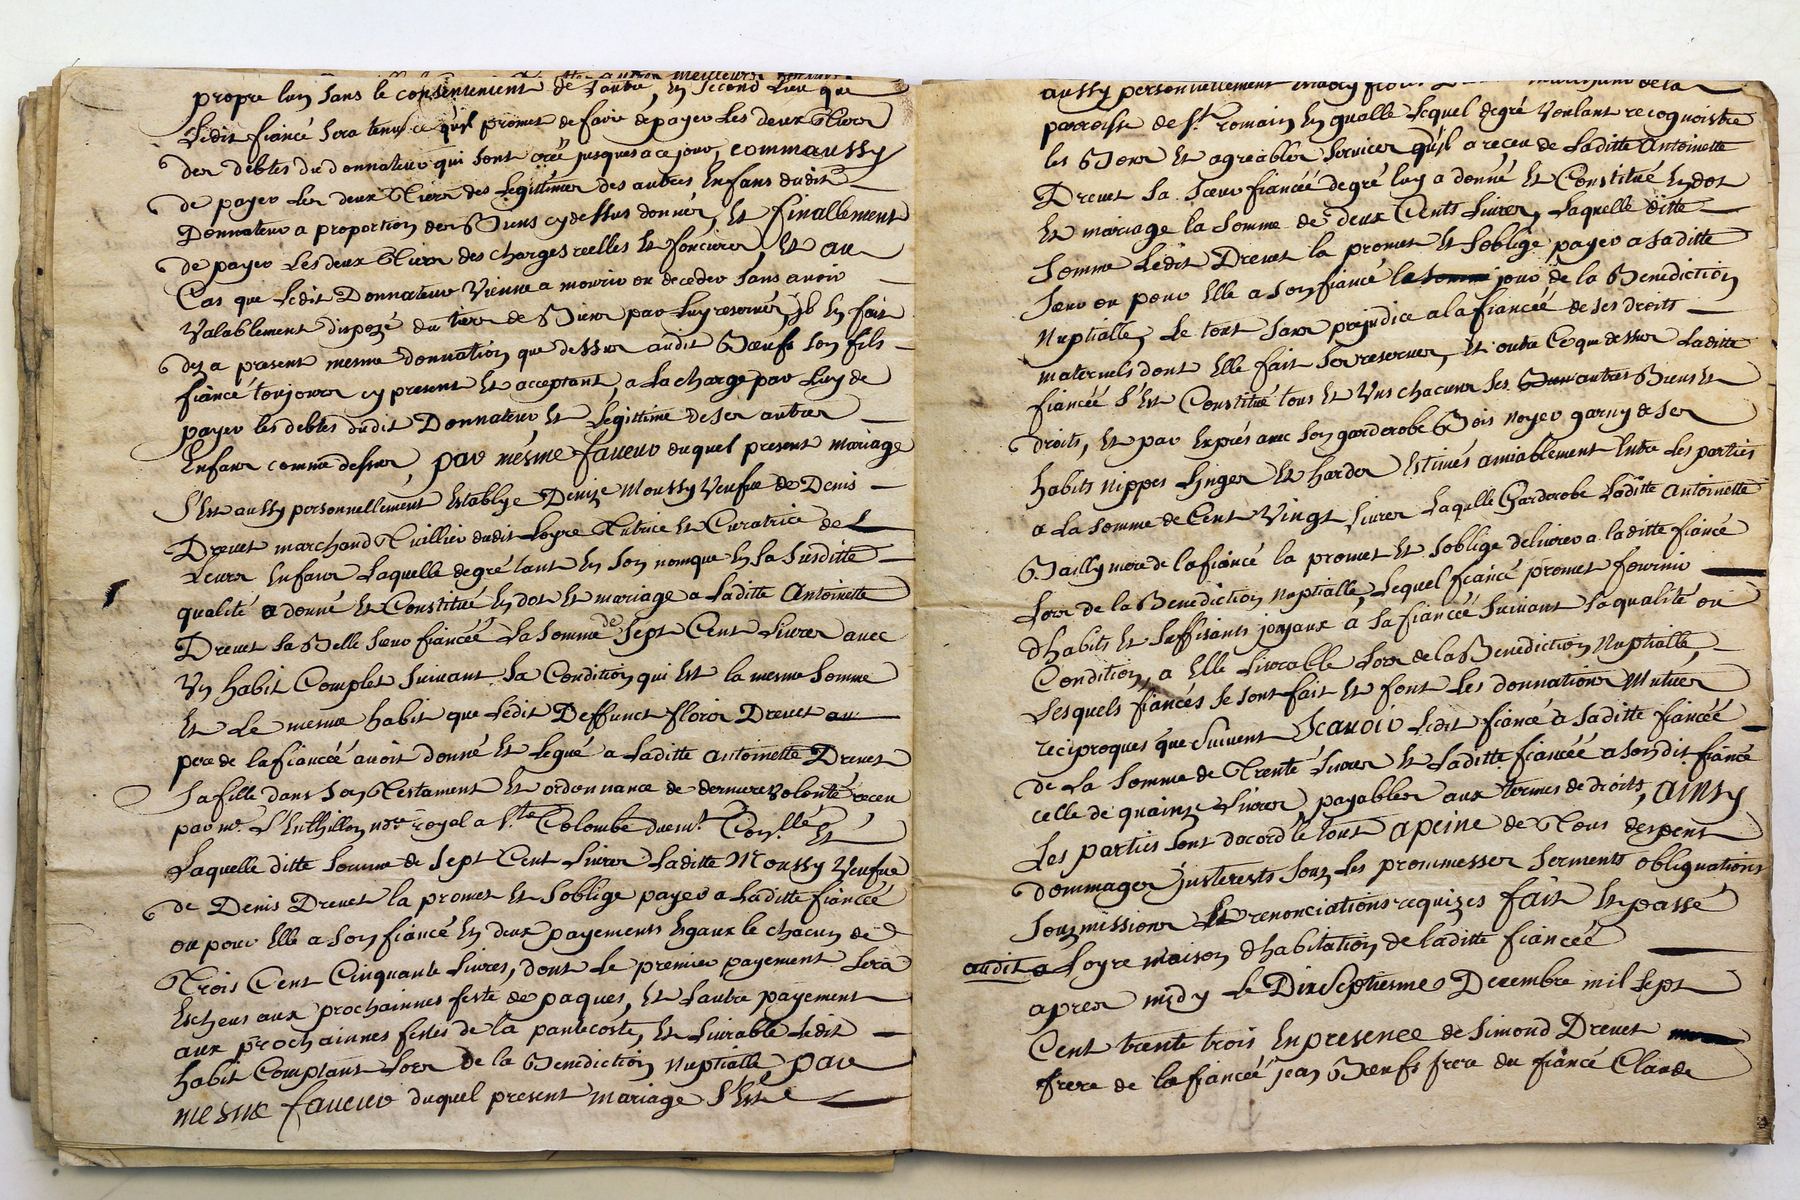 propre luy sans le consentement de lautre, en second lieu que
Ledit fiancé sera tenu ce quil promet de faire de payer les deux tiers
des debtes du donnateur qui sont créé jusques a ce jour, comm aussy
de payer les deux tiers des legittimes des autres enfans dudit
Donnateur a proportion des Biens cy dessus donnés, et finallement
de payer Les deux tiers des charges reelles et foncires, et au
Cas que Ledit Donnateur Vienne a mourir ou deceder sans avoir
Valablement disposé du tiers de Biens par luy reservés, il en fait
dez a present mesme donnation que dessus audit Bœuf son fils
fiancé toujours cy present et acceptant, a la charge par luy de
payer les debtes dudit Donnateur et legittime de ses autres
Enfans comme dessus, par mesme faveur duquel present mariage
s'est aussy personnellement establye Denize Moussy Veufve de Denis
Drevet marchand Tuillier dudit Loyre Tutrice et Curatrice de
Leurs Enfans Laquelle de gré tant en son nom que en sa susditte
qualité a donné et Constitué en dot et mariage a laditte Antoinette
Drevet sa Belle sœur fiancéé, la somme de sept Cent Livres avec
Un habit Complet suivant sa Condition qui est la mesme somme
et Le mesme habit que Ledit Deffunct floris Drevet
pere de la fiancéé avoit donné et legué a laditte antoinette Drevet
sa fille dans son Testament et ordonnance de derniere volonté receu
par me. L'Enthillon nore royal a Ste Colombe et
Laquelle ditte somme de sept Cent Livres laditte Moussy Veufve
de Denis Drevet la promet et soblige payer a laditte fiancéé
ou pour Elle a son fiancé en deux payements Egaux le chacun de
Trois Cent Cinquante Livres, dont le premier payement sera
Escheus aux prochainnes feste de paques, et lautre payement
aux prochainnes festes de la pantecoste, et livrable Ledit
habit Comptant Lors de la Benediction Nuptialle, par
mesme faveur duquel present mariage s'est
aussy personnellement marchand de la
parroisse de St. romain en qualle Lequel de gré Voulant recoignoistre
les Bons et agreables services quil a receu de Laditte Antoinette
Drevet sa sœur fiancéé de gré luy a donné et Constitué en dot
et mariage la somme de deux Cents Livres, Laquelle ditte
somme Ledit Drevet la promet et soblige payer a saditte
sœur ou pour Elle a son fiancé le jour de la Benediction
Nuptialle, Le tout sans prejudice a la fiancéé de ses droits
maternels dont Elle fait ses reserves, et outre Ce que dessus Laditte
fiancéé s'est Constitué tous et Uns chacuns ses autres Biens et
droits, et par Exprés avec son garderobe Bois noyer garny de ses
habits nippes linges et hardes estimés amiablement Entre Les parties
a la somme de Cent Vingt Livres Laqulle Garderobe Laditte Antoinette
Bailly mere de la fiancé la promet et soblige delivrer a laditte fiancé
Lors de la Benediction Nuptialle, Lequel fiancé promet fournir
dhabits et suffisants joyaux á sa fiancéé suivant sa qualité ou
Condition, a Elle livrable Lors de la Benediction Nuptialle
Lesquels fiancés se sont fait et font Les donnations Mutues
reciproques que suivent Scavoir Ledit fiancé a saditte fiancéé
de La somme de Trente Livres et Laditte fiancéé a sondit fiancé
celle de quainze Livres, payables aux termes de droits, ainsy
Les parties sont dacord le tout a peine de Tous despent
dommages justerests sous Les prommesses serments obligations
sousmissions et renonciations requizes fait et passé
audit Loyre maison dhabitation de laditte fiancéé
apres midy Le Dix septiesme Decembre mil sept
Cent trente trois En presence de Simond Drevet
frere de la fiancéé jean Bœuf frere du fiancé Claude